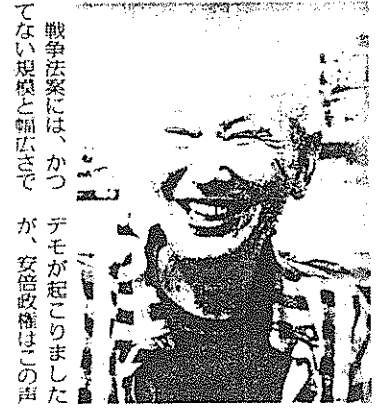 戦争法案には、かつ
てない規模と幅広さで
デモが起こりました
が、安倍政権はこの声